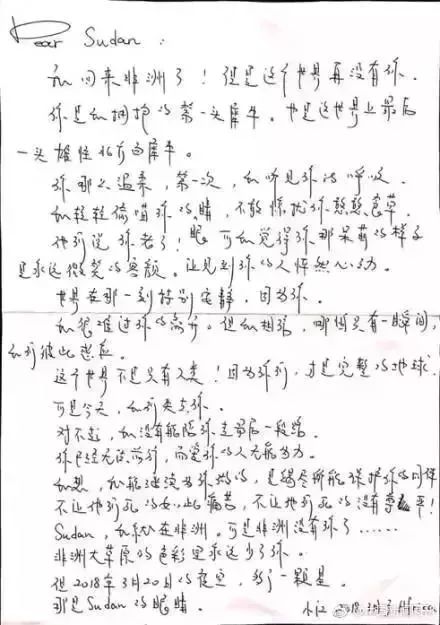 Dear Sudan:
我回来非洲了！但是这个世界再没有你.
你是我拥抱的第一头犀牛。也是这世界上最后
一头雄性北方白犀牛。
你那么温柔，第一次，我听见你的呼吸.
我轻轻偷瞄你的眼睛，不敢惊扰你憨憨食草.
他们说你老了！可我觉得你那呆萌的样子
是永远微笑的容颜。让见到你的人怦然心动。
世界在那一刻特别安静，因为你。
我很难过你的离开。但我相信，哪怕只有一瞬间,
我们彼此感应。
这个世界不是只有人类！因为你们，才是完整的地球.
可是今天，我们失去你.
对不起，我没有能陪你走最后一段路.
你已经无法前行，而爱你的人无能为力.
我想，我能继续为你做的，是竭尽所能保护你的同伴
不让他们死的如此痛苦，不让他们死的没有尊严！
Sudan，我在非洲。可是非洲没有你了……
非洲大草原的色彩里永远少了你.
但2018年3月20日的夜空，多了一颗星.
那是Sudan的眼睛.
2018.